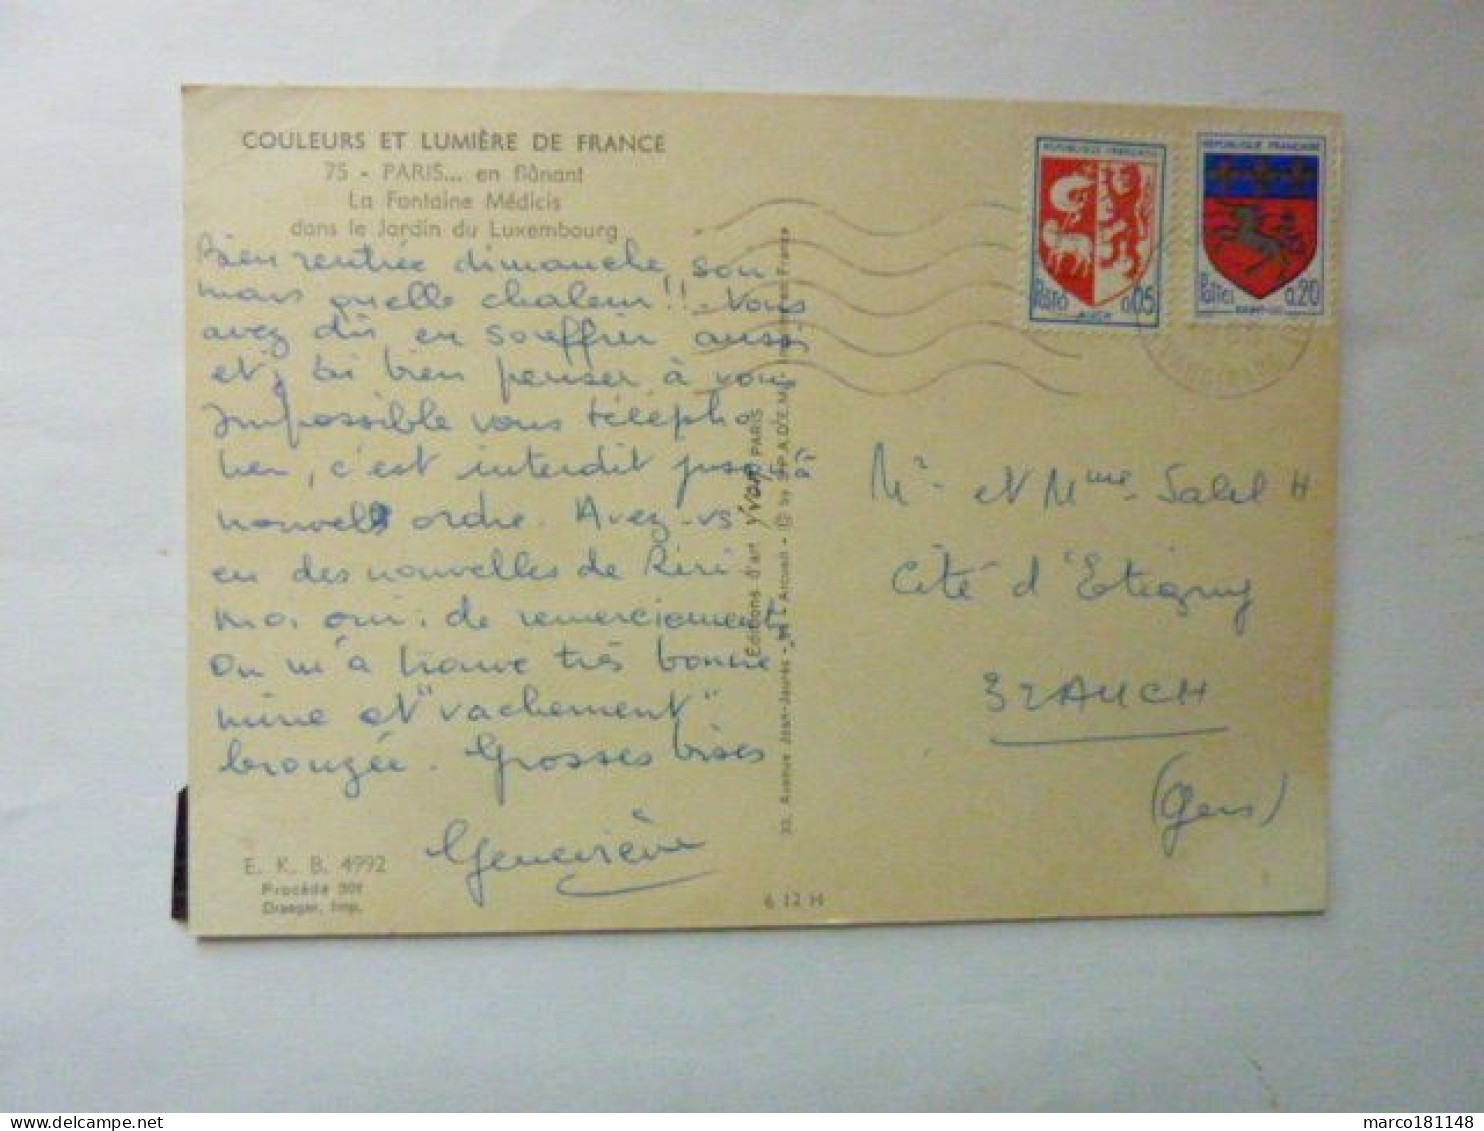 COULEURS ET LUMIÈRE DE FRANCE
75 - PARIS... en flânant
La Fontaine Médicis
dans le Jardin du Luxembourg
Bien rentrée dimanche soir
mais quelle chaleur!! Vous
avez dû en souffrir aussi
et j'ai bien penser à vous
Impossible vous télépho
ner, c'est interdit jusqu'à
nouvel ordre. Avez-vs
eu des nouvelles de Riri
moi oui, de remerciements
On m'a trouvé très bonne
mine et "vachement"
bronzée. Grosses bises
Geneviève
E. K. B. 4992
Procédé 301
Draeger, Imp.
6 12 H
Éditions d'art Yvon PARIS
33, Avenue Jean-Jaurès - Arcueil - by S.P.A.D.E.M. - Imprimé en France
RÉPUBLIQUE FRANÇAISE
Postes 0,05
AUCH
RÉPUBLIQUE FRANÇAISE
Postes 0,20
SAINT-LO
Mr et Mme Salel H
Cité d'Etigny
32 AUCH
(Gers)
marco181148